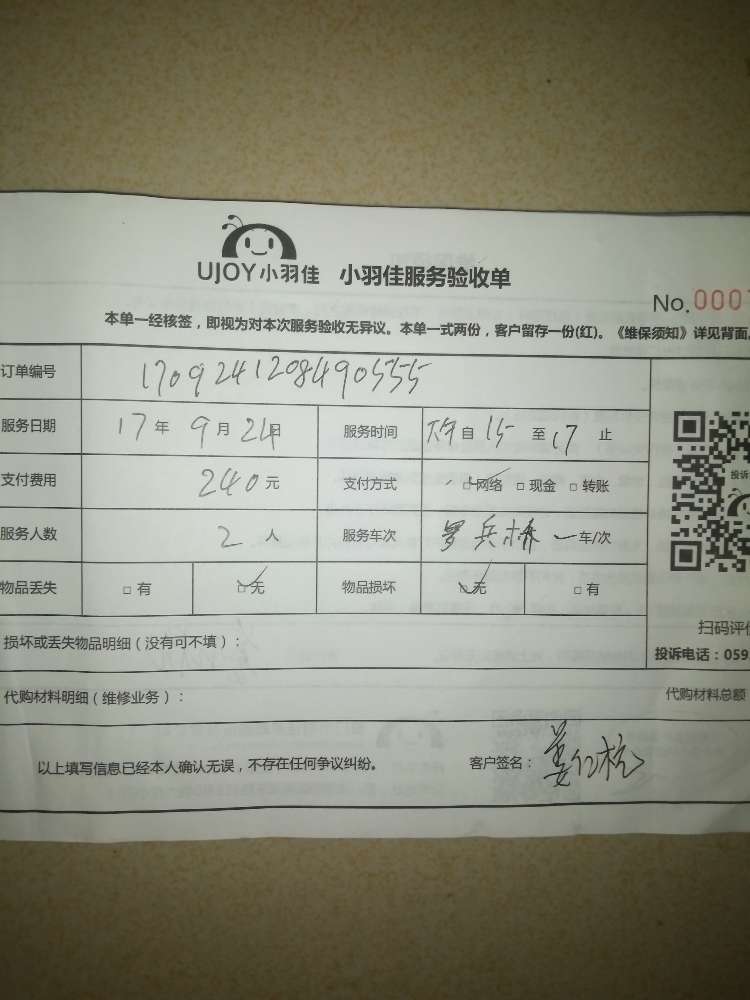 UJOY小羽佳 小羽佳服务验收单
No.000
本单一经核签，即视为对本次服务验收无异议。本单一式两份，客户留存一份(红)。《维保须知》详见背面。
订单编号 1709241208490555
服务日期 17年 9月 24日 服务时间 自 15 至 17 止
支付费用 240元 支付方式 □网络 □现金 □转账
服务人数 2 人 服务车次 罗兵林 一 车/次
物品丢失 □有 □无 物品损坏 □无 □有
损坏或丢失物品明细（没有可不填）：
代购材料明细（维修业务）：
代购材料总额
以上填写信息已经本人确认无误，不存在任何争议纠纷。 客户签名：
投诉
扫码评
投诉电话：059